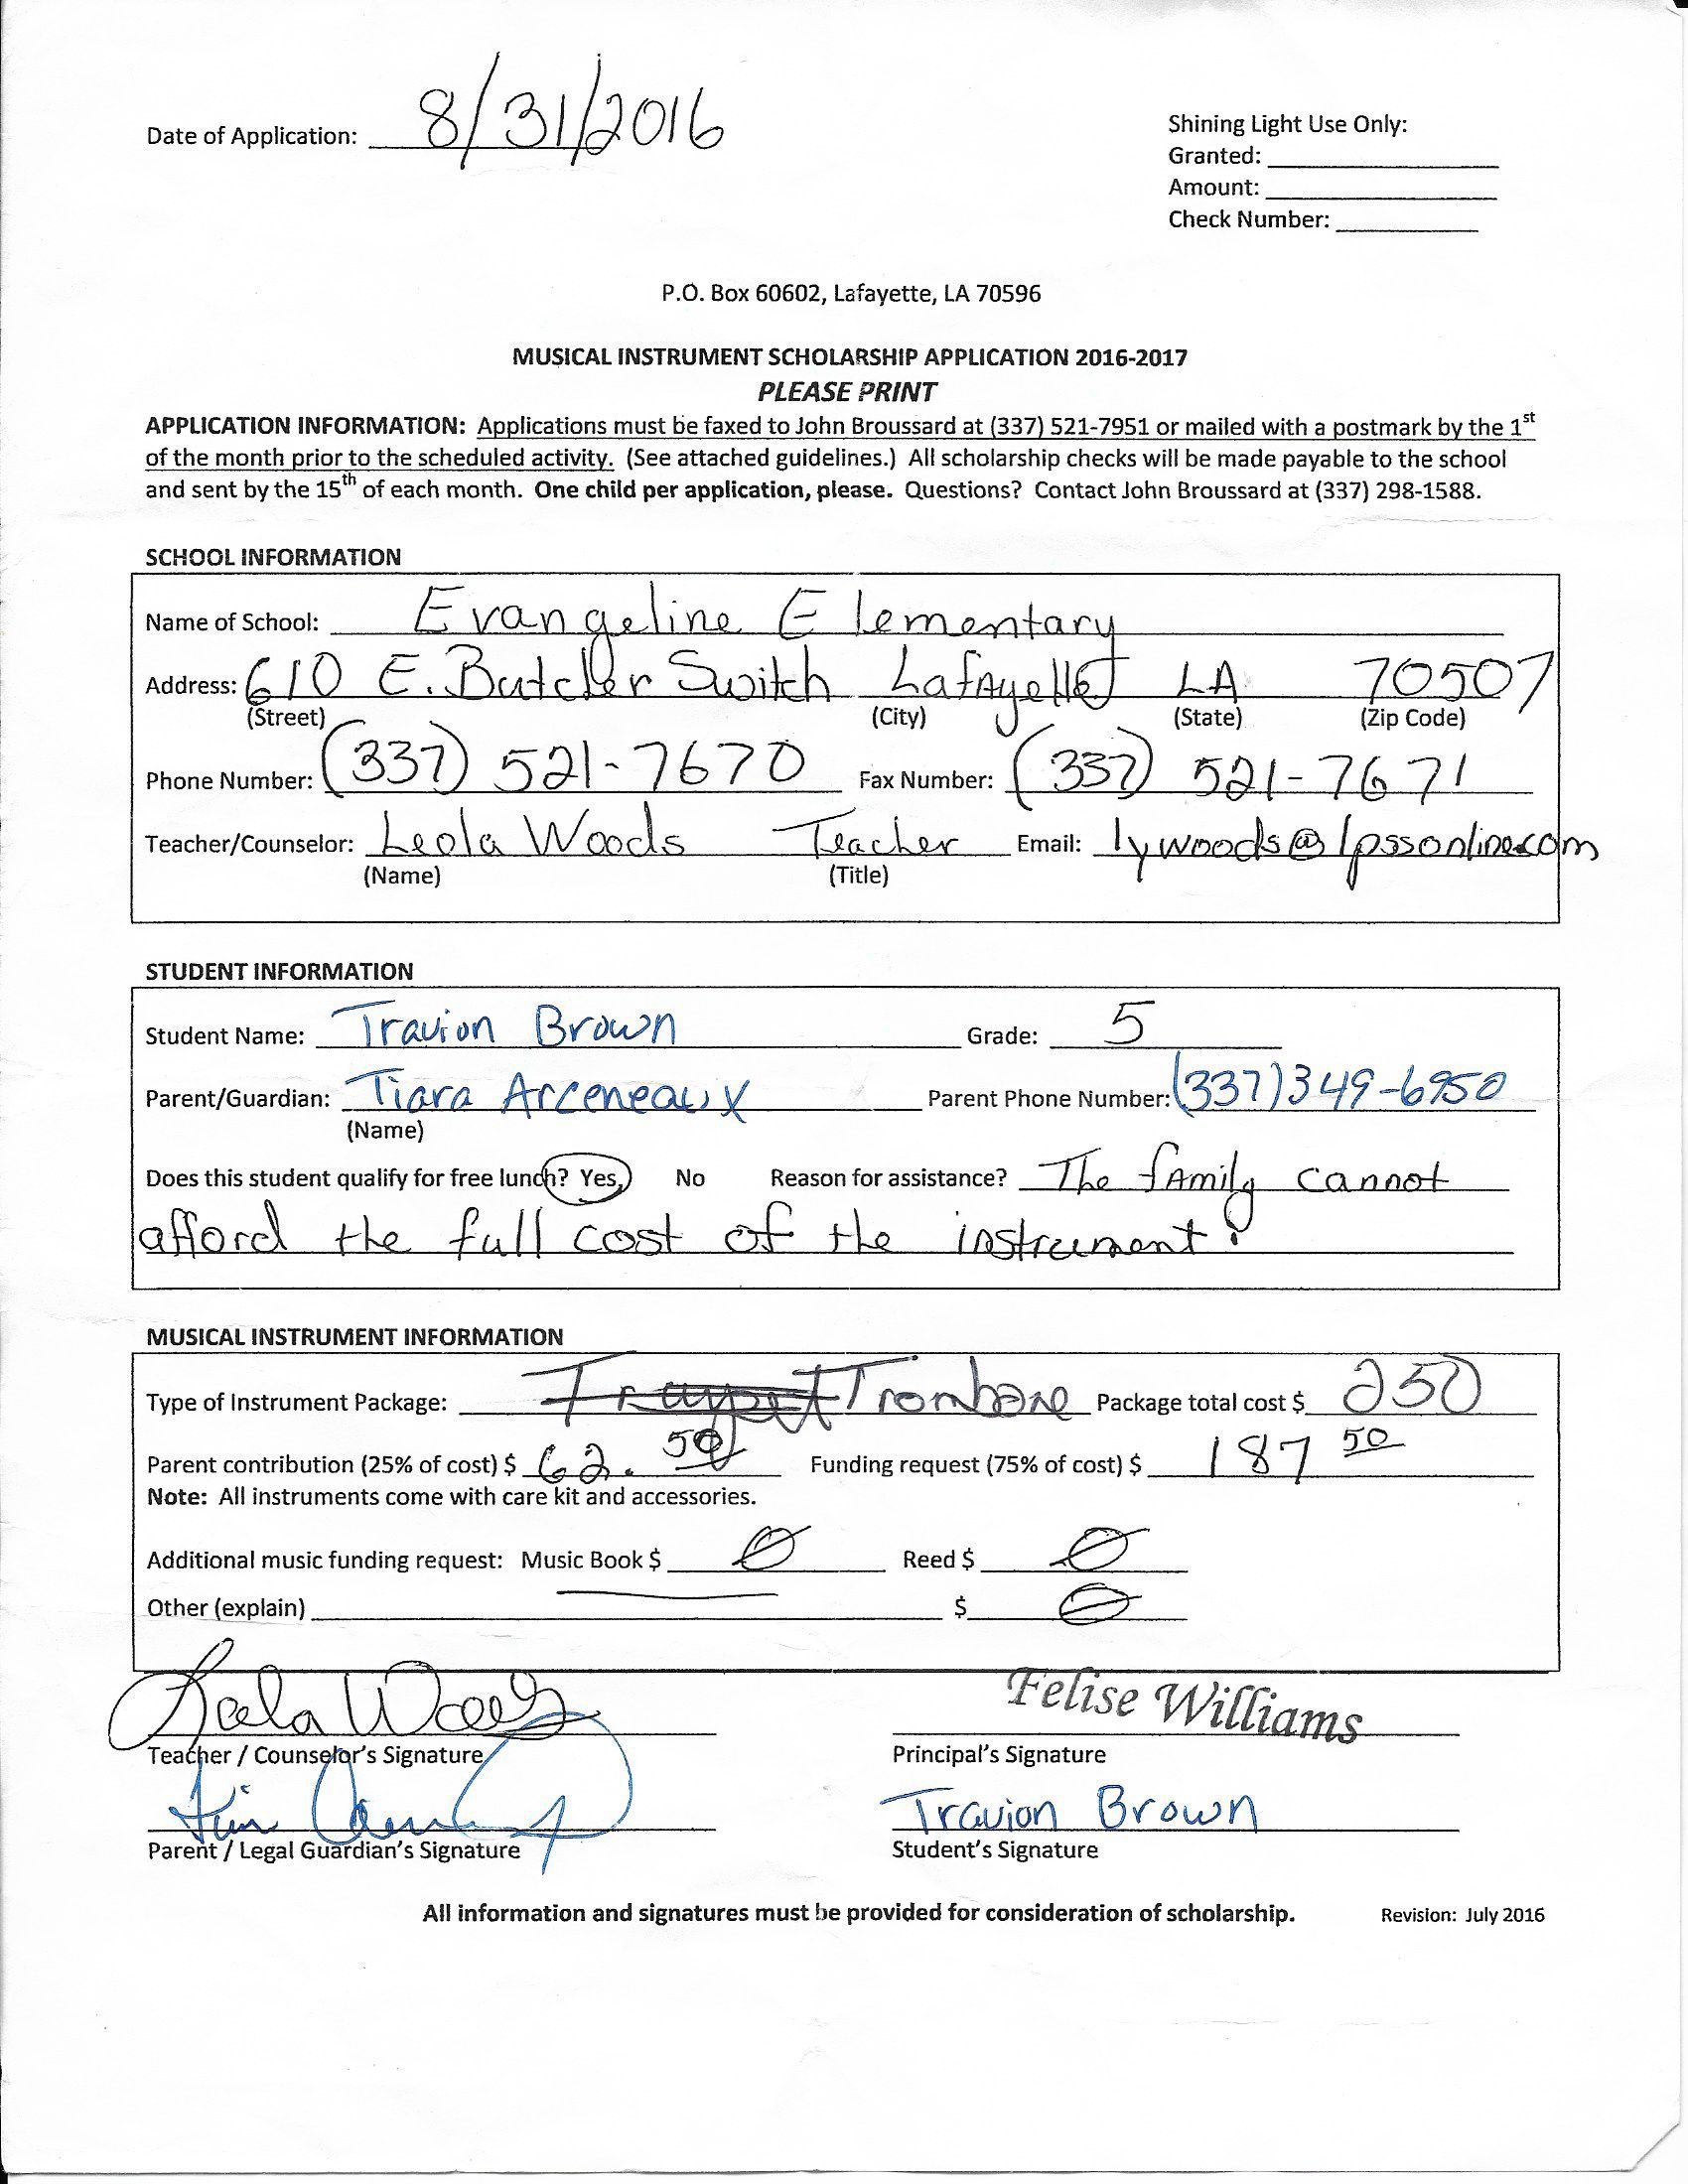 Date of Application: 8/31/2016
Shining Light Use Only:
Granted:
Amount:
Check Number:
P.O. Box 60602, Lafayette, LA 70596
MUSICAL INSTRUMENT SCHOLARSHIP APPLICATION 2016-2017
PLEASE PRINT
APPLICATION INFORMATION: Applications must be faxed to John Broussard at (337) 521-7951 or mailed with a postmark by the 1st
of the month prior to the scheduled activity. (See attached guidelines.) All scholarship checks will be made payable to the school
and sent by the 15th of each month. One child per application, please. Questions? Contact John Broussard at (337) 298-1588.
SCHOOL INFORMATION
Name of School: Evangeline Elementary
Address: 610 E. Butcher Switch Lafayette LA 70507
(Street) (City) (State) (Zip Code)
Phone Number: (337) 521-7670 Fax Number: (337) 521-7671
Teacher/Counselor: Leola Woods Teacher Email: lywoods@lpssonline.com
(Name) (Title)
STUDENT INFORMATION
Student Name: Travion Brown Grade: 5
Parent/Guardian: Tiara Arceneaux Parent Phone Number: (337)349-6950
(Name)
Does this student qualify for free lunch? Yes No Reason for assistance? The family cannot
afford the full cost of the instrument.
MUSICAL INSTRUMENT INFORMATION
Type of Instrument Package: Trombone Package total cost $ 250
Parent contribution (25% of cost) $ 62.50 Funding request (75% of cost) $ 187 50
Note: All instruments come with care kit and accessories.
Additional music funding request: Music Book $ 0 Reed $ 0
Other (explain) $ 0
Leola Woods Felise Williams
Teacher / Counselor's Signature Principal's Signature
Travion Brown
Parent / Legal Guardian's Signature Student's Signature
All information and signatures must be provided for consideration of scholarship. Revision: July 2016